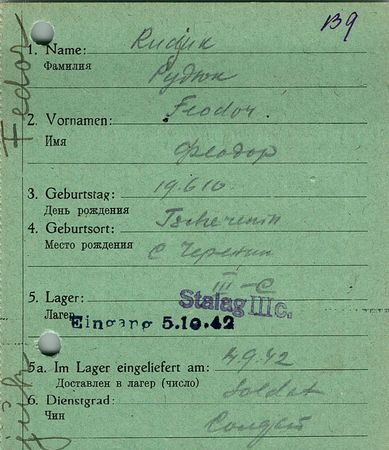 139
1. Name: Rudjuk
Фамилия Рудюк
2. Vornamen: Feodor.
Имя Феодор
3. Geburtstag: 19.6.10
День рождения
4. Geburtsort: Tscherenin
Место рождения С Черенин
III-C
5. Lager: Stalag III c.
Лагерь
Eingang 5.10.42
5a. Im Lager eingeliefert am: 4.9.42
Доставлен в лагер (число)
6. Dienstgrad: Soldat
Чин Солдат
Fedor